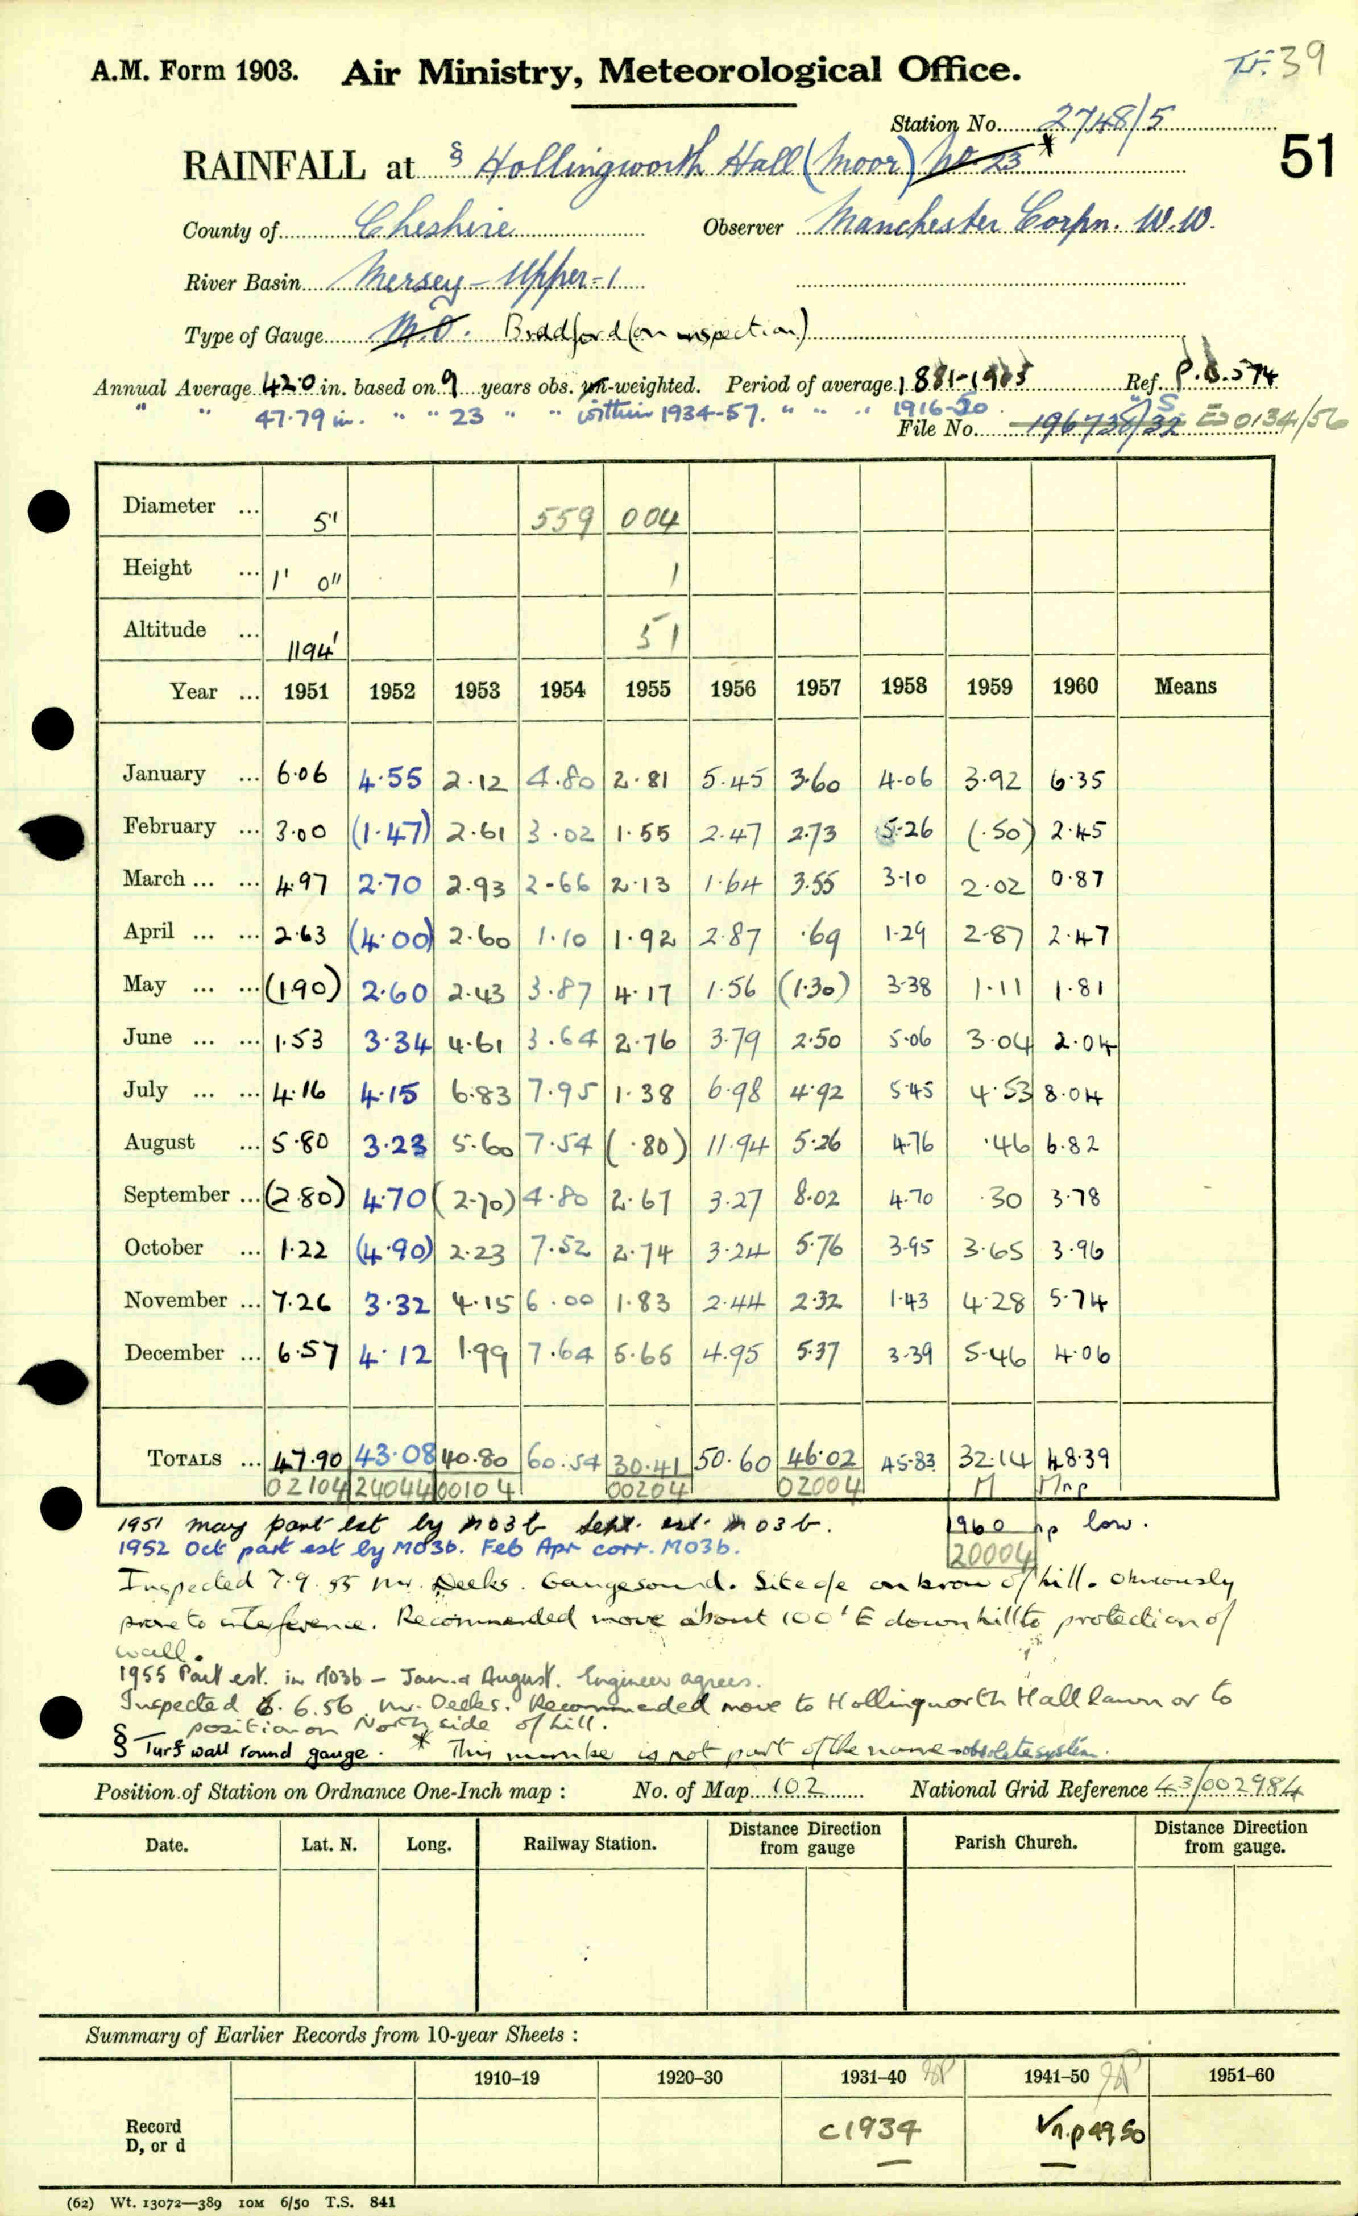 A.M. Form 1903. Air Ministry, Meteorological Office. 39
Station No. 2748/5
51
RAINFALL at § Hollingworth Hall (Moor) No. 23 *
County of Cheshire Observer Manchester Corpn. W.W.
River Basin Mersey - Upper - 1
Type of Gauge M.O. Bradford (on inspection)
Annual Average 42.0 in. based on 9 years obs. un-weighted. Period of average 1881-1915 Ref. P.B. 574
" " 47.79 in. " " 23 " " within 1934-57. " " " 1916-50
File No. 196738/32 0134/56
Diameter ... 5" 559 004
Height ... 1' 0" 1
Altitude ... 1194' 51
Year ... 1951 1952 1953 1954 1955 1956 1957 1958 1959 1960 Means
January ... 6.06 4.55 2.12 4.80 2.81 5.45 3.60 4.06 3.92 6.35
February ... 3.00 (1.47) 2.61 3.02 1.55 2.47 2.73 5.26 (.50) 2.45
March ... ... 4.97 2.70 2.93 2.66 2.13 1.64 3.55 3.10 2.02 0.87
April ... ... 2.63 (4.00) 2.60 1.10 1.92 2.87 .69 1.29 2.87 2.47
May ... ... (1.90) 2.60 2.43 3.87 4.17 1.56 (1.30) 3.38 1.11 1.81
June ... ... 1.53 3.34 4.61 3.64 2.76 3.79 2.50 5.06 3.04 2.04
July ... ... 4.16 4.15 6.83 7.95 1.38 6.98 4.92 5.45 4.53 8.04
August ... 5.80 3.23 5.60 7.54 (.80) 11.94 5.26 4.76 .46 6.82
September ... (2.80) 4.70 (2.70) 4.80 2.67 3.27 8.02 4.70 .30 3.78
October ... 1.22 (4.90) 2.23 7.52 2.74 3.24 5.76 3.95 3.65 3.96
November ... 7.26 3.32 4.15 6.00 1.83 2.44 2.32 1.43 4.28 5.74
December ... 6.57 4.12 1.99 7.64 5.65 4.95 5.37 3.39 5.46 4.06
TOTALS ... 47.90 43.08 40.80 60.54 30.41 50.60 46.02 45.83 32.14 48.39
02104 24044 00104 00204 02004 M Mnp
1951 May part est by MO3b Sept. est. MO3b. 1960 np low.
1952 Oct part est by MO3b. Feb Apr corr. MO3b. 20004
Inspected 7.9.55 Mr. Deeks. Gauge sound. Site o/e on brow of hill. Obviously
prone to interference. Recommended move about 100' E downhill to protection of
wall.
1955 Part est. in MO3b - Jan. & August. Engineer agrees.
Inspected 6.6.56 Mr. Deeks. Recommended move to Hollingworth Hall lawn or to
position on North side of hill.
§ Turf wall round gauge. * This number is not part of the name - obsolete system.
Position of Station on Ordnance One-Inch map : No. of Map 102 National Grid Reference 43/002984
Date. Lat. N. Long. Railway Station. Distance Direction from gauge Parish Church. Distance Direction from gauge.
Summary of Earlier Records from 10-year Sheets :
1910-19 1920-30 1931-40 1941-50 1951-60
Record
D, or d
c1934 √n.p 49,50
(62) Wt. 13072—389 10M 6/50 T.S. 841